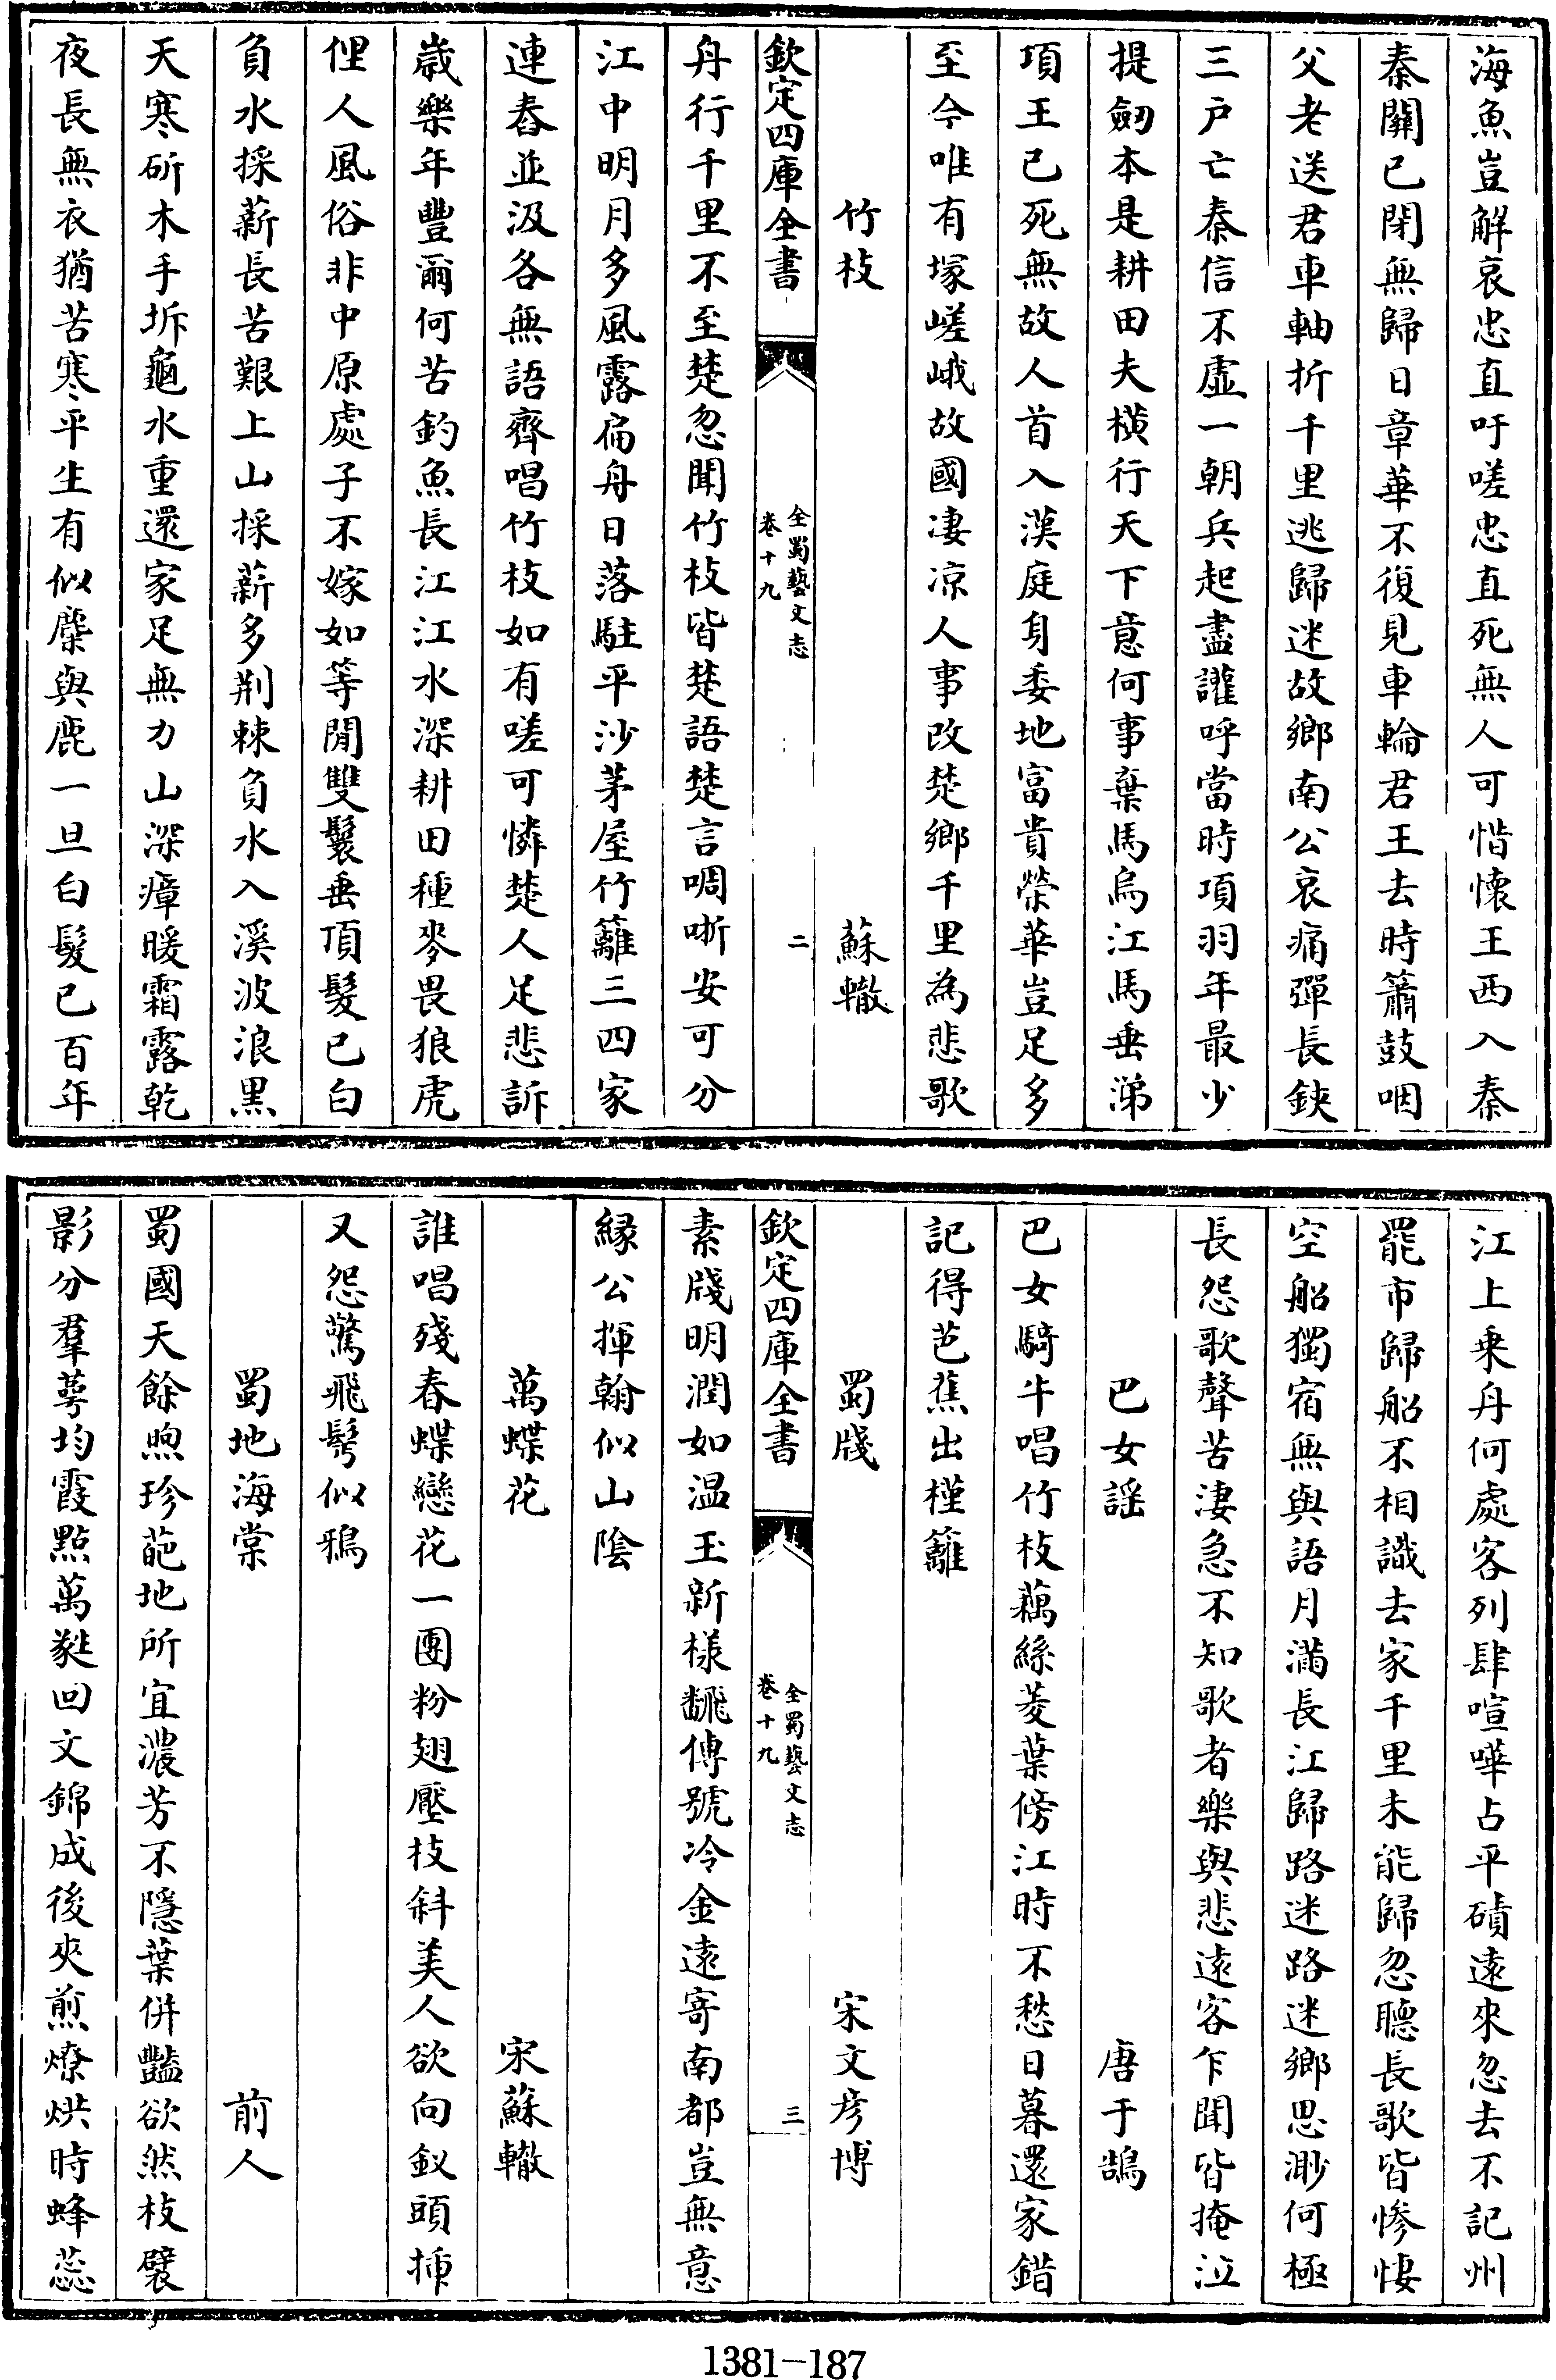 海魚豈解哀忠直吁嗟忠直死無人可惜懷王西入秦
秦關已閉無歸日章華不復見車輪君王去時簫鼓咽
父老送君車軸折千里逃歸迷故鄉南公哀痛彈長鋏
三戶亡秦信不虛一朝兵起盡讙呼當時項羽年最少
提劒本是耕田夫橫行天下意何事棄馬烏江馬垂涕
項王已死無故人首入漢庭身委地富貴榮華豈足多
至今唯有塚嵯峨故國凄凉人事改楚鄉千里為悲歌
竹枝 蘇轍
欽定四庫全書 全蜀藝文志 卷十九 二
舟行千里不至楚忽聞竹枝皆楚語楚言啁哳安可分
江中明月多風露扁舟日落駐平沙茅屋竹籬三四家
連舂並汲各無語齊唱竹枝如有嗟可憐楚人足悲訴
歲樂年豐爾何苦釣魚長江江水深耕田種麥畏狼虎
俚人風俗非中原處子不嫁如等閒雙鬟垂頂髮已白
負水採薪長苦艱上山採薪多荆棘負水入溪波浪黑
天寒斫木手坼龜水重還家足無力山深瘴暖霜露乾
夜長無衣猶苦寒平生有似麋與鹿一旦白髮已百年
江上乘舟何處客列肆喧嘩占平磧遠來忽去不記州
罷市歸船不相識去家千里未能歸忽聽長歌皆慘悽
空船獨宿無與語月滿長江歸路迷路迷鄉思渺何極
長怨歌聲苦淒急不知歌者樂與悲遠客乍聞皆掩泣
巴女謡 唐于鵠
巴女騎牛唱竹枝藕絲菱葉傍江時不愁日暮還家錯
記得芭蕉出槿籬
蜀牋 宋文彦博
欽定四庫全書 全蜀藝文志 卷十九 三
素牋明潤如温玉新樣飜傳號冷金遠寄南都豈無意
緣公揮翰似山陰
萬蝶花 宋蘇轍
誰唱殘春蝶戀花一團粉翅壓枝斜美人欲向釵頭揷
又怨驚飛鬂似鴉
蜀地海棠 前人
蜀國天餘煦珍葩地所宜濃芳不隱葉併豔欲然枝襞
影分羣萼均霞點萬蕤回文錦成後夾煎燎烘時蜂蕊
1381-187